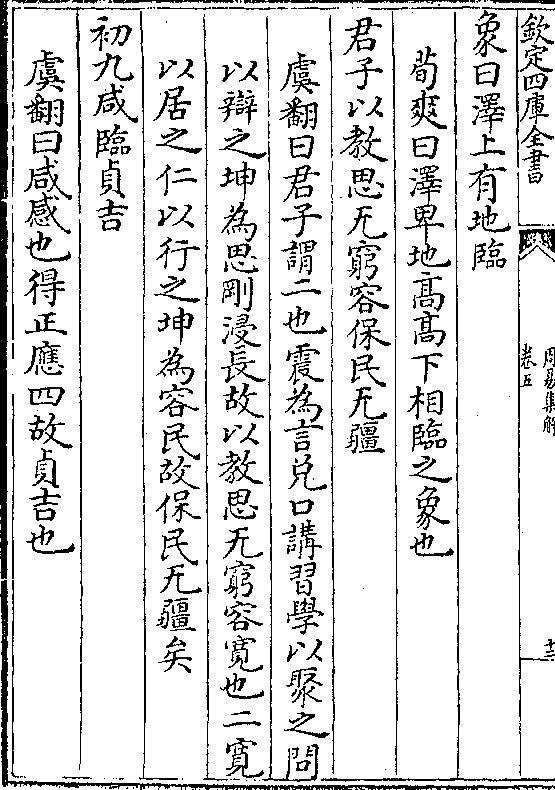 欽定四庫全書
周易集解
卷五
十三
象曰澤上有地臨
荀爽曰澤卑地高高下相臨之象也
君子以教思无窮容保民无疆
虞翻曰君子謂二也震為言兌口講習學以聚之問
以辯之坤為思剛浸長故以教思无窮容寛也二寛
以居之仁以行之坤為容民故保民无疆矣
初九咸臨貞吉
虞翻曰咸感也得正應四故貞吉也